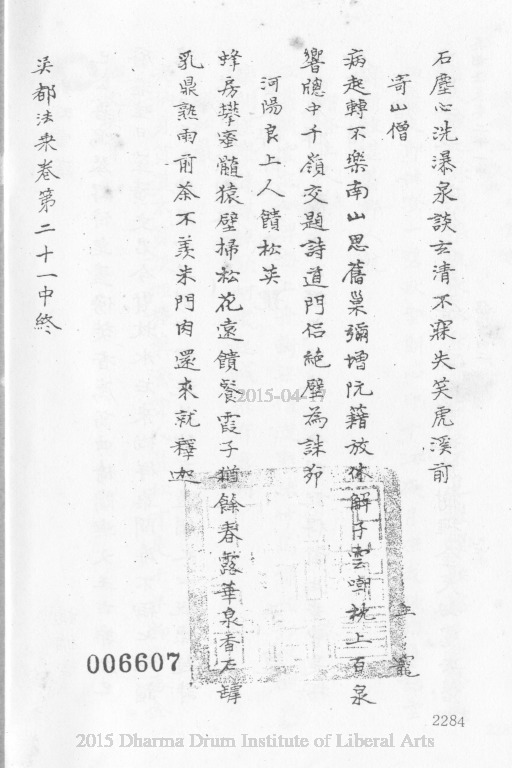 石塵心洗瀑泉談玄清不寐失笑虎溪前
寄山僧
王寵
病起轉不樂南山思舊巢彌增阮籍放休解子雲嘲枕上百泉
響牕中千嶺交題詩道門侶絶壁為誅茆
河陽良上人饋松英
蜂房攀蜜髓猿壁掃松花遠饋餐霞子猶餘春露華泉香石罅
乳鼎熟雨前茶不羨朱門肉還來就釋迦
吳都法乘卷第二十一中終
006607
2284
2015-04-17
2015 Dharma Drum Institute of Liberal Arts